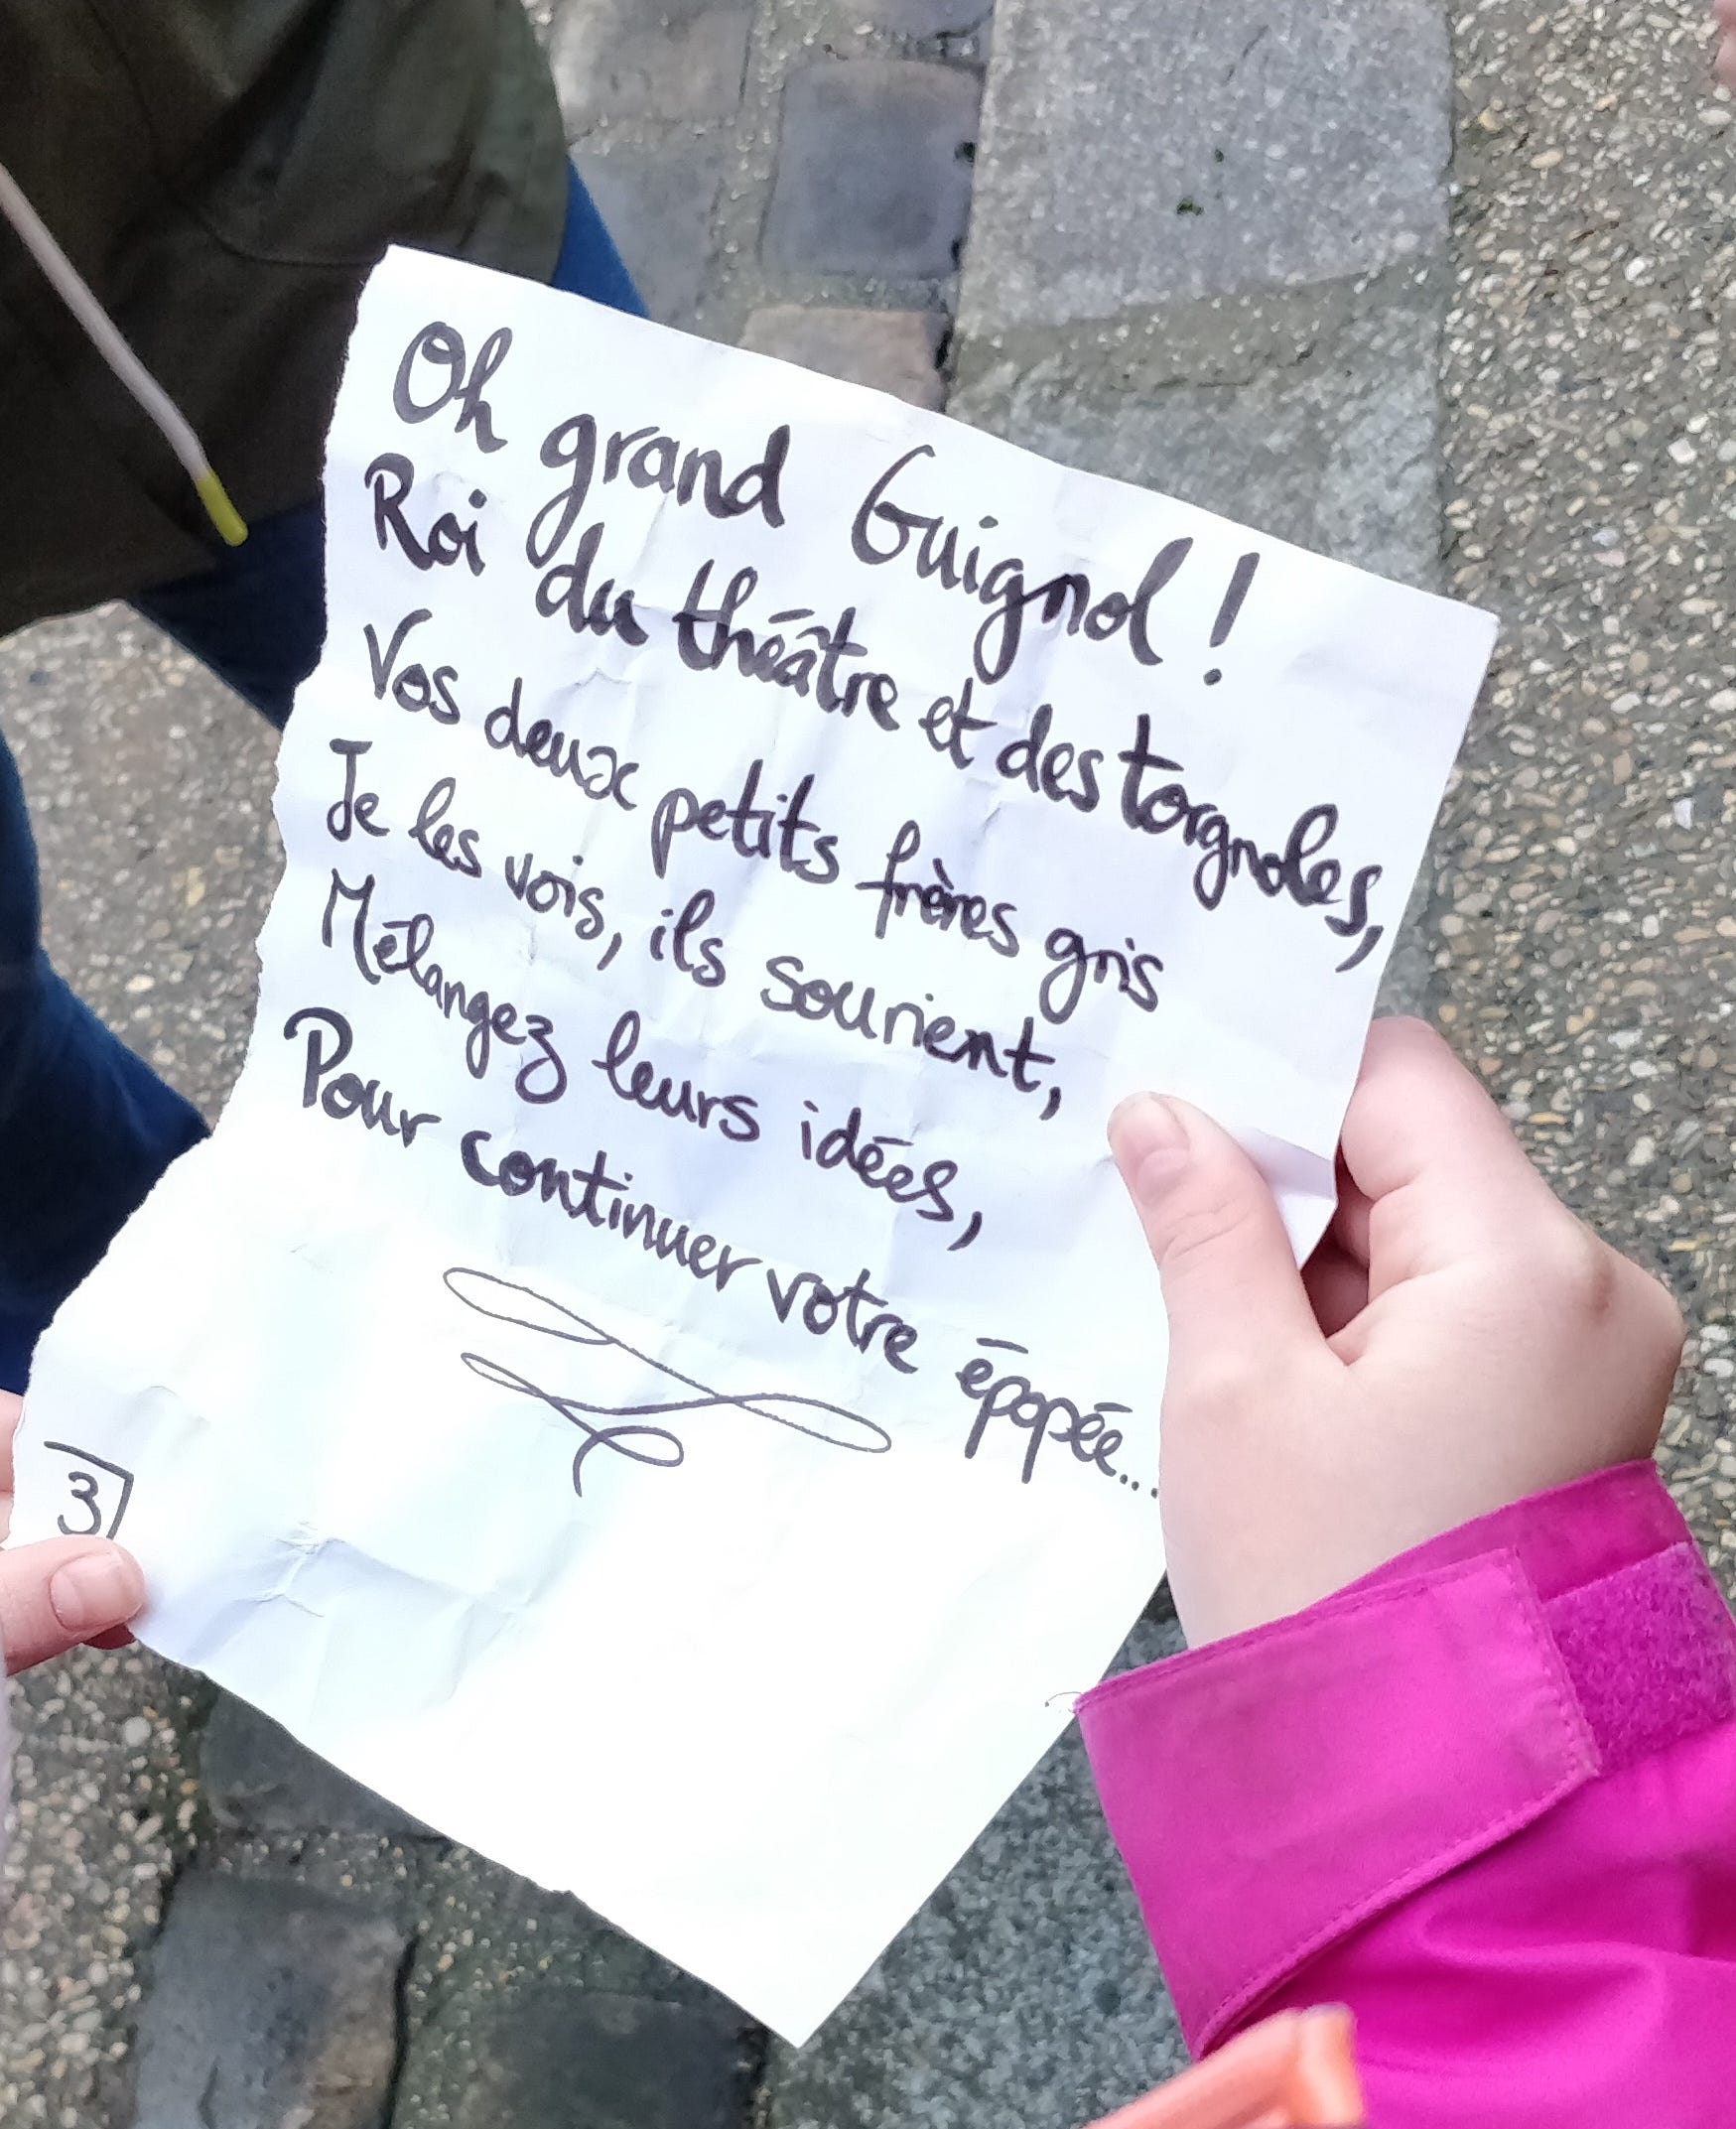 Oh grand Guignol !
Roi du théâtre et des torgnoles,
Vos deux petits frères gris
Je les vois, ils sourient,
Mélangez leurs idées,
Pour continuer votre épopée...
3